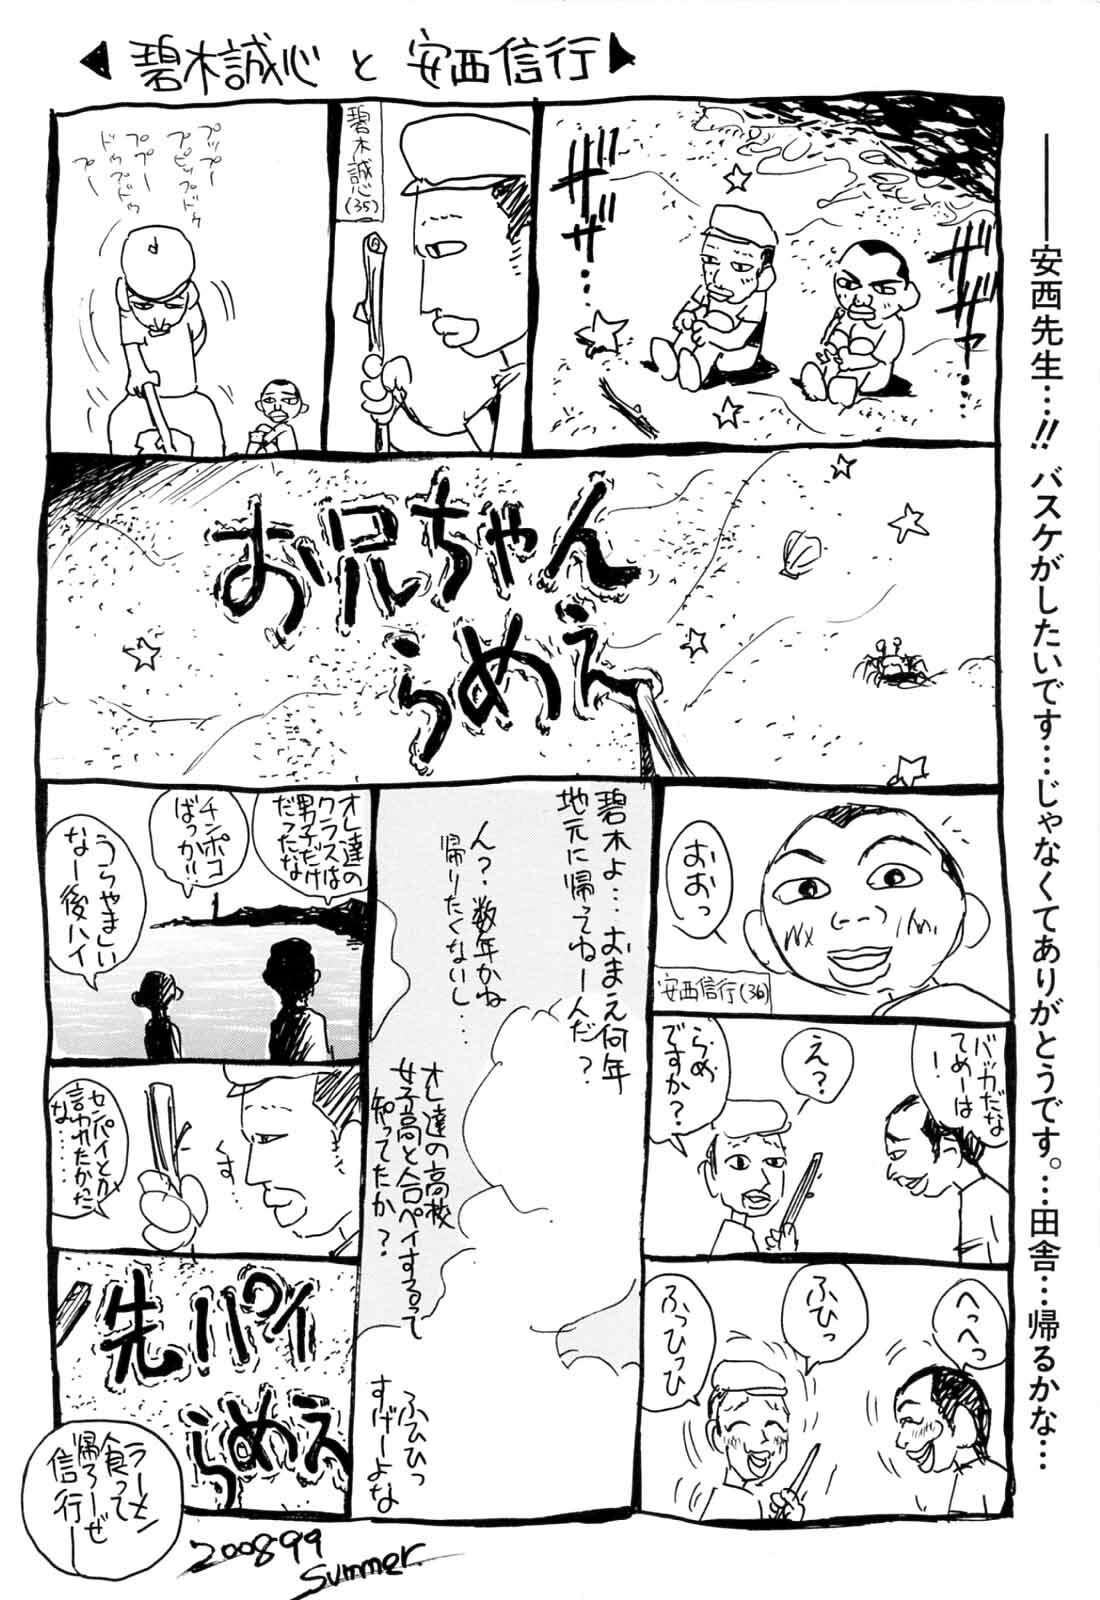 碧木誠心 と 安西信行
安西先生…!! バスケがしたいです…じゃなくてありがとうです。…田舎…帰るかな…
ザザザザ…
ザザザザ…
碧木誠心(35)
プップー
プピップドゥ
ププー
ドゥプドゥ
プー
お兄ちゃん
らめえ
おおっ
安西信行(36)
バッカだな
てめーは
！
え？
らめ
ですか？
へっへっ
ふひっ
ふっひっひ
碧木よ…おまえ何年
地元に帰ってねーんだ？
ん？数年かね
帰りたくないし…
オレ達の高校
女子高と合ペイするって
知ってたか？
ふひひっ
すげーよな
オレ達の
クラスは
男子だけ
だったな
チンポコ
ばっか!!
うらやましい
なー後ハイ
す
センパイとか
言われたかった
な……
先パイ
らめえ
ラーメン
食って
帰ろーぜ
信行ー
200899
Summer.